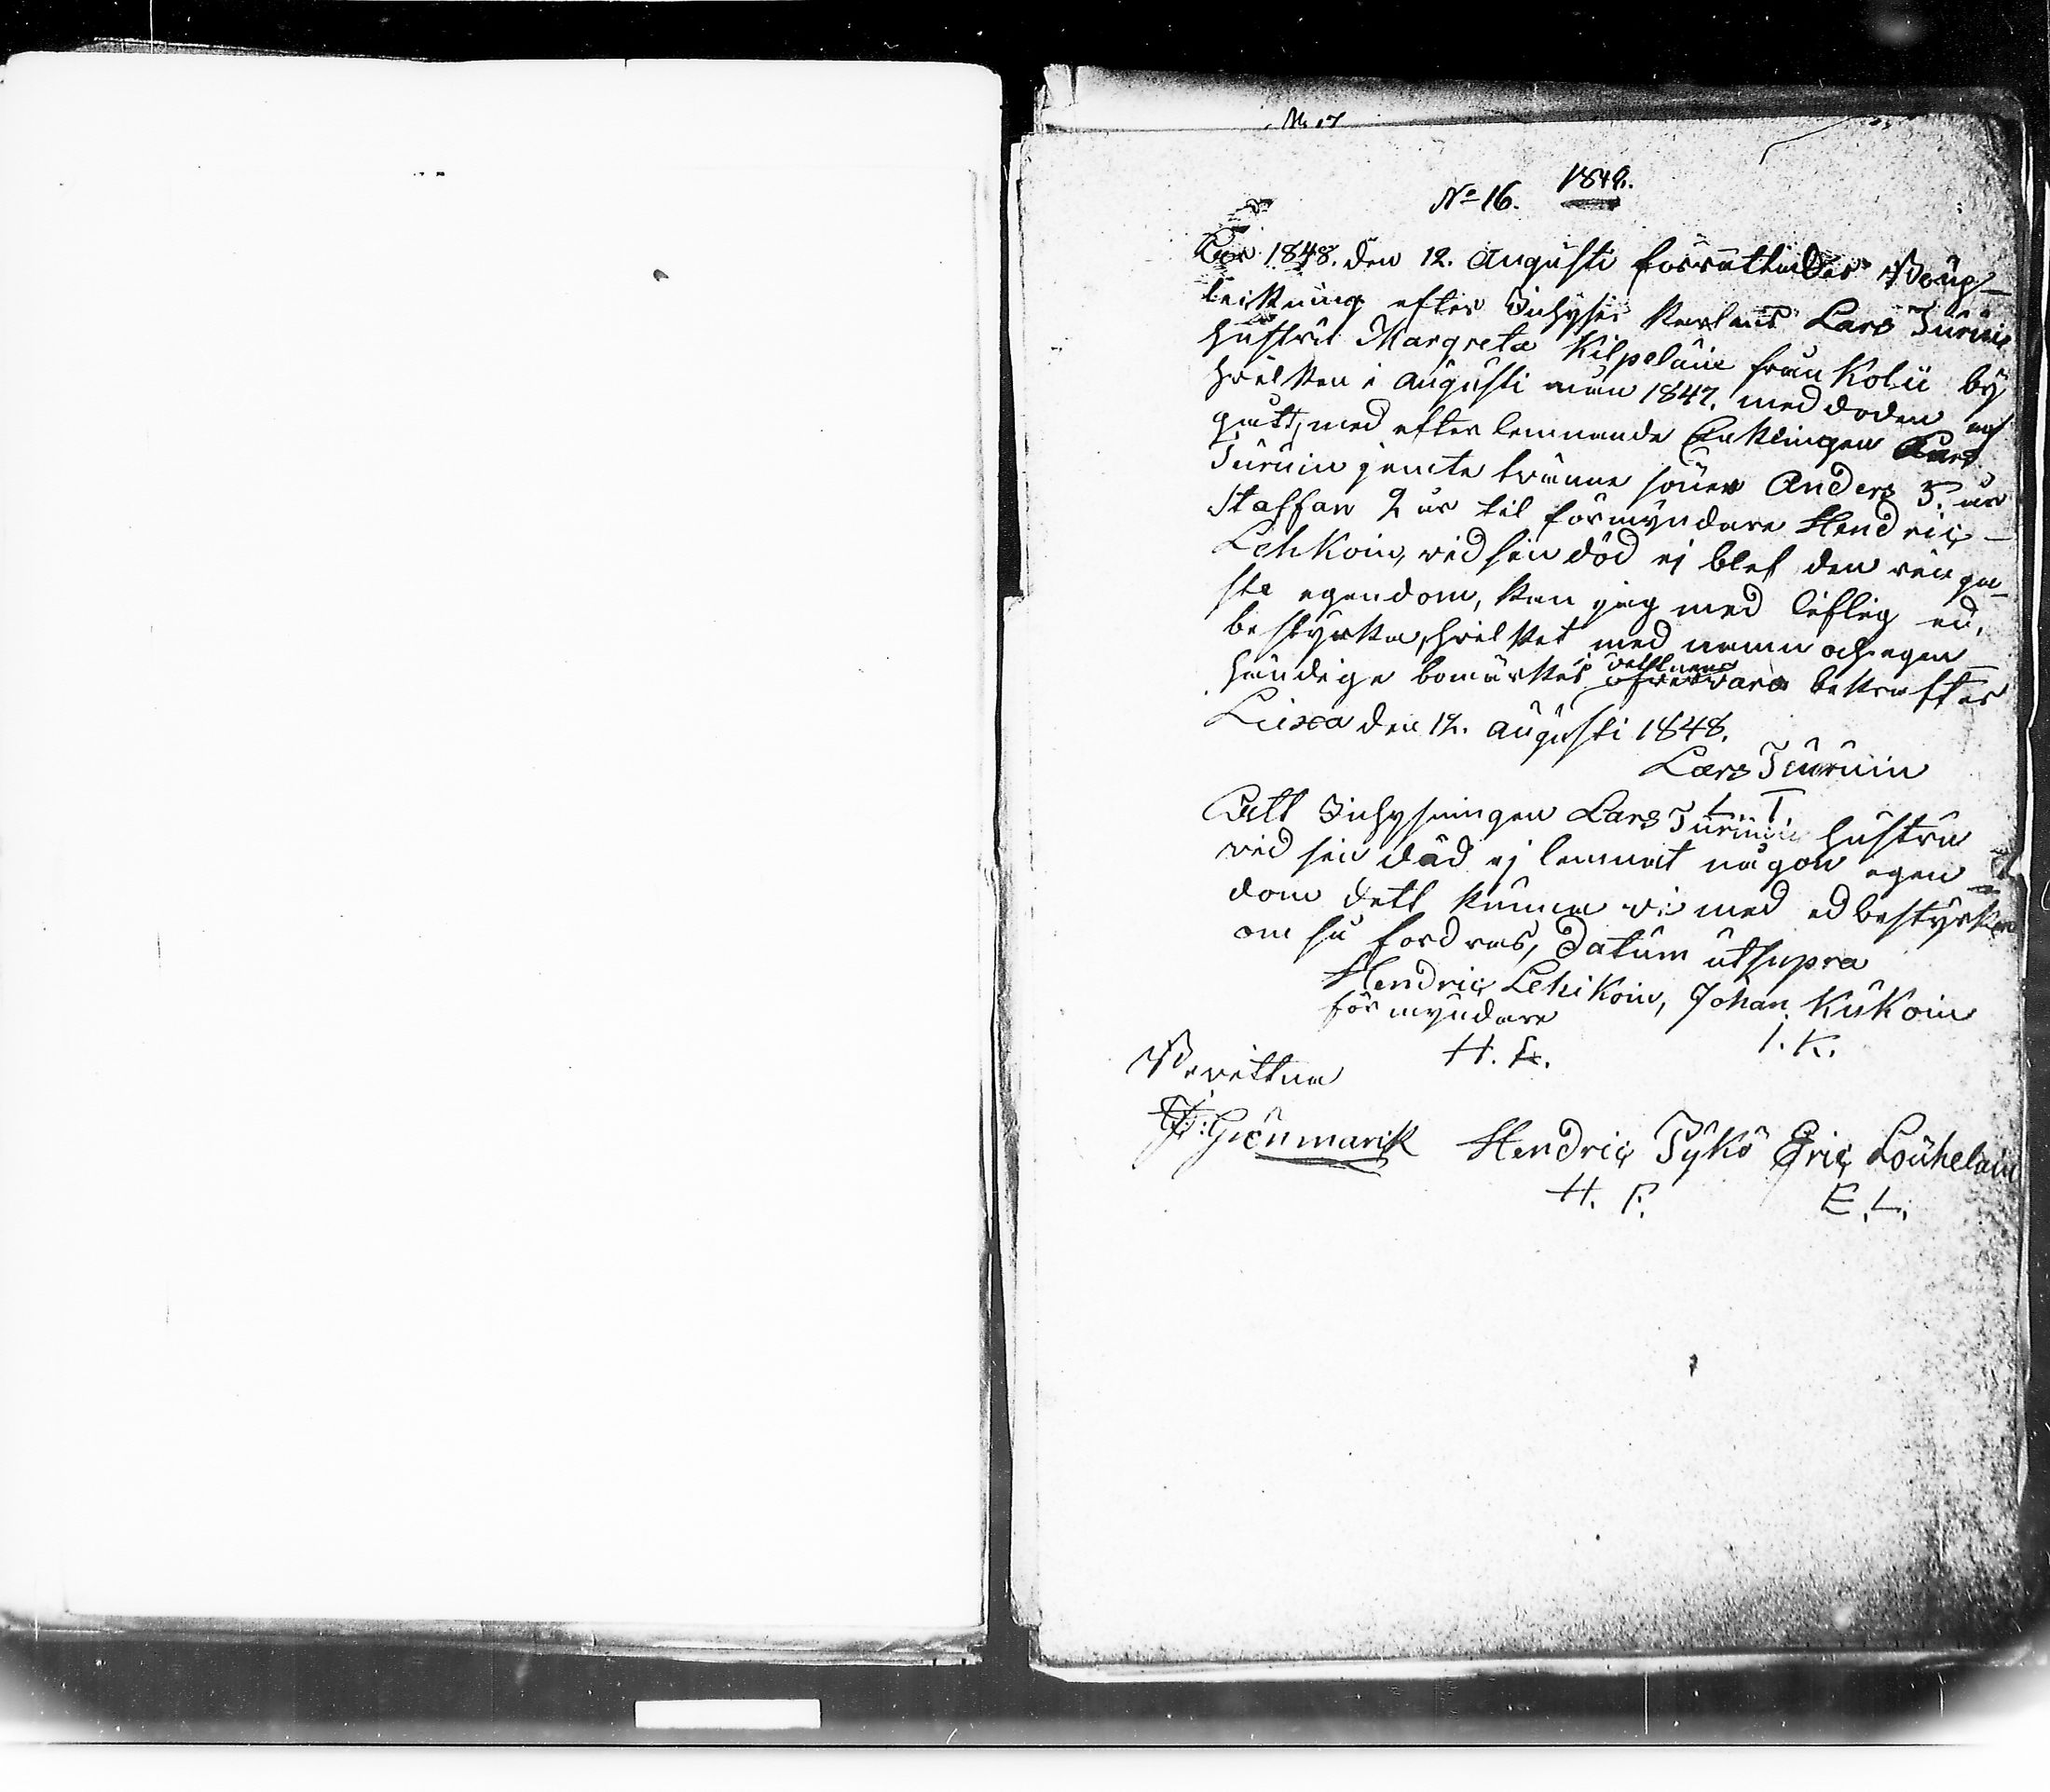 No 17
No 16. 1848.
År 1848. den 12. Augusti förrättades Boup-
teckning efter Inhyses Karlens Lars Turuin
hustru Margreta Kilpeläin från Kolii by
hvilken i Augusti mån 1847. med döden af
gått, med efterlemnande Enklingen Lars
Turuin jemte tvänne söner Anders 5. år
Staffan 2 år til förmyndare Hendric
Lehkoin, vid sin död ej blef den ringa-
ste egendom, kan jag med liflig ed,
bestyrka, hvilket med namn och egen
händige bomärkes vettnens öfvervaro bekräftas
Lixa den 12. Augusti 1848.
Lars Turuin
L T
Att Inhysningen Lars Turuin hustru
vid sin död ej lemnat någon egen
dom dett kunna vi med ed bestyrka
om så fordras, Datum utsupra
Hendric Lehikoin, Johan Kukoin
förmyndare
H. L. I. K.
Bevittna
Grönmarck Hendric Pykö Eric Louhelain
H. P. E. L.